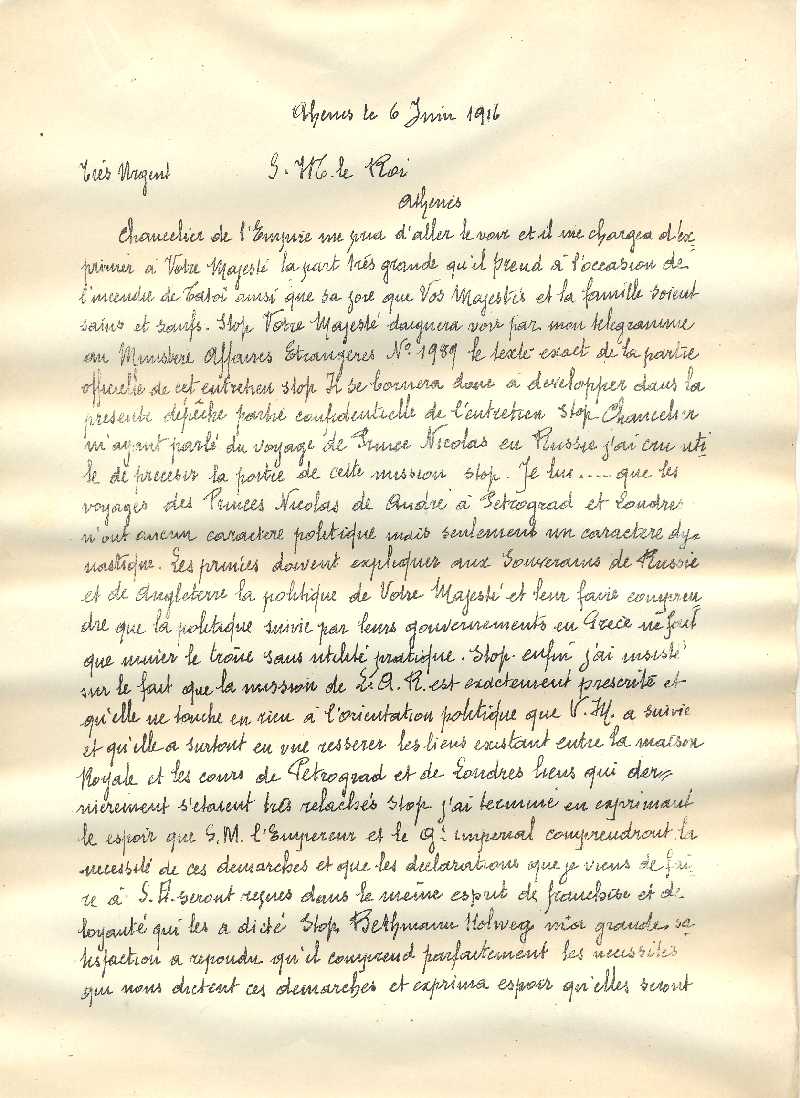 Athenes le 6 Juin 1916
Très Urgent S. M. le Roi
Athenes
Chancelier de l'Empire me pria d'aller le voir et il me chargea d'ex-
primer à Votre Majesté la part très grande qu'il prend à l'occasion de
l'incendie de Tatoi ainsi que sa joie que Vos Majestés et la famille soient
sains et saufs. Stop Votre Majesté daignera voir par mon telegramme
au Ministère Affaires Etrangères No 1989 le texte exact de la partie
officielle de cet entretien stop Il se bornera donc a developper dans la
presente dépêche partie confidentielle de l'entretien Stop Chancelier
m'ayant parlé du voyage de Prince Nicolas en Russie j'ai cru uti
le de preceser la portie de cette mission stop. Je lui ..... que les
voyages des Princes Nicolas de André à Petrograd et Londres
n'ont aucun caractere politique mais seulement un caractere dy-
nastique. Les princes doivent expliquer aux Souverains de Russie
et de Angleterre la politique de Votre Majesté et leur faire compren
dre que la politique suivie par leurs gouvernements en Grèce ne fait
que miner le trône sans utilité pratique. Stop. enfin j'ai insisté
sur le fait que la mission de L. A. R. est exactement prescrite et
qu'elle ne touche en rien à l'orientation politique que V. M. a suivie
et qu'elle a surtout en vue resserer les liens existant entre la maison
Royale et les cours de Petrograd et de Londres liens qui der-
nierement s'etaient très relachés stop j'ai terminé en exprimant
le espoir que S. M. l'Empereur et le gt imperial comprendront la
necessité de ces demarches et que les declarations que je viens de fai
re à S. A. seront reçues dans le même esprit de franchise et de
loyauté qui les a dicté Stop Bethmann Holweg m'a grande sa
tisfaction a repondu qu'il comprend parfaitement les necessités
qui nous dictent ces demarches et exprima espoir qu'elles seront